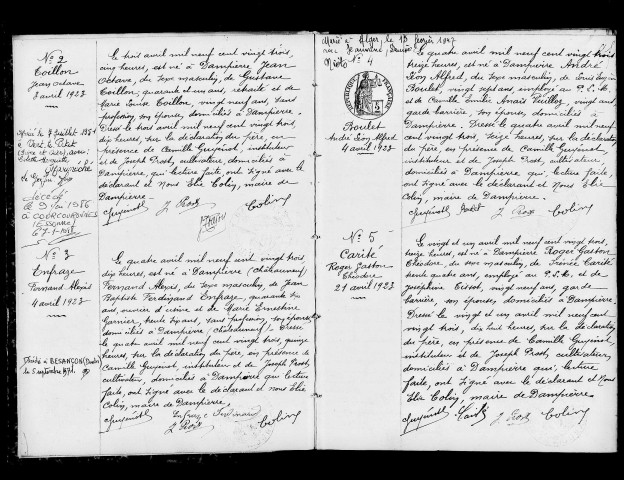 N° 2
Coillon
Jean Octave
3 avril 1923
Le trois avril mil neuf cent vingt trois,
cinq heures, est né à Dampierre Jean
Octave, du sexe masculin, de Gustave
Coillon, quarante et un ans, retraité et de
Marie Louise Coillon, vingt neuf ans, sans
profession, son épouse, domiciliés à Dampierre.
Dressé le trois avril mil neuf cent vingt trois
dix heures, sur la déclaration du père, en
présence de Camille Guyénot, instituteur
et de Joseph Prost, cultivateur, domiciliés à
Dampierre, qui, lecture faite, ont signé avec le
déclarant et Nous Elie Colin, maire de
Dampierre.
Guyénot J. Prost Colin
Décédé
le 9 1986
à COURCOURONNES
(Essonne)
N° 3
Enfraze
Fernand Alexis
4 avril 1923
Le quatre avril mil neuf cent vingt trois
dix heures, est né à Dampierre (Châteauneuf)
Fernand Alexis, du sexe masculin, de Jean
Baptiste Ferdinand Enfraze, quarante six
ans, ouvrier d'usine et de Marie Ernestine
Garnier, trente six ans, sans profession, son épouse
domiciliés à Dampierre (Châteauneuf). Dressé
le quatre avril mil neuf cent vingt trois, quinze
heures, sur la déclaration du père, en présence de
Camille Guyénot, instituteur et de Joseph Prost,
cultivateur, domiciliés à Dampierre qui lecture
faite, ont signé avec le déclarant et Nous Elie
Colin, maire de Dampierre.
Guyénot Enfraze Ferdinand
J. Prost Colin
Décédé à BESANÇON (Doubs)
le 5 septembre 1971.
Marié à Alger, le 13 février 1947
N° 4
Boulet
André Léon Alfred
4 avril 1923
Le quatre avril mil neuf cent vingt trois
treize heures, est né à Dampierre André
Léon Alfred, du sexe masculin, de Louis Eugène
Boulet, vingt sept ans, employé au P.L.M.
et de Camille Emilie Anaïs Vuillez, vingt ans,
garde barrière, son épouse, domiciliés à
Dampierre. Dressé le quatre avril mil neuf
cent vingt trois, seize heures, sur la déclaration
du père, en présence de Camille Guyénot,
instituteur et de Joseph Prost, cultivateur,
domiciliés à Dampierre, qui, lecture faite,
ont signé avec le déclarant et Nous Elie Colin,
maire de Dampierre.
Guyénot Boulet J. Prost Colin
N° 5
Carité
Roger Gaston
Théodore
21 avril 1923
Le vingt et un avril mil neuf cent vingt trois,
treize heures, est né à Dampierre Roger Gaston
Théodore, du sexe masculin, de Irénée Carité
trente quatre ans, employé au P.L.M. et de
Joséphine Cissot, vingt neuf ans, garde
barrière, son épouse, domiciliés à Dampierre.
Dressé le vingt et un avril mil neuf cent
vingt trois, dix huit heures, sur la déclaration
du père, en présence de Camille Guyénot,
instituteur et de Joseph Prost, cultivateur,
domiciliés à Dampierre qui, lecture
faite, ont signé avec le déclarant et Nous
Elie Colin, maire de Dampierre.
Guyénot Carité J. Prost Colin